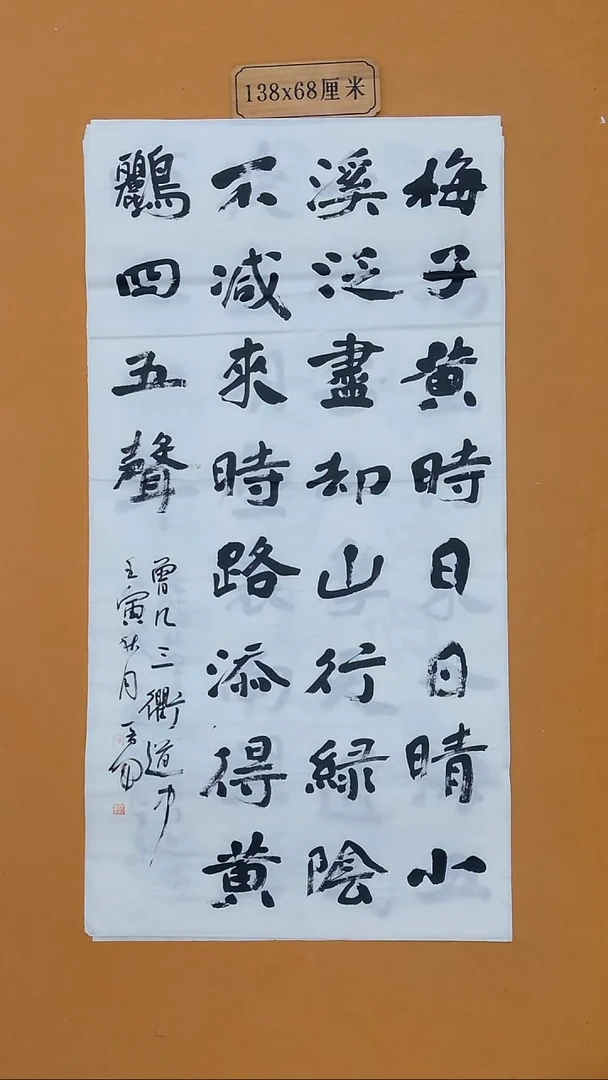 138x68厘米
梅子黄時日日晴小
溪泛盡却山行緑陰
不減來時路添得黄
鸝四五聲
曾几三衢道中
壬寅秋月